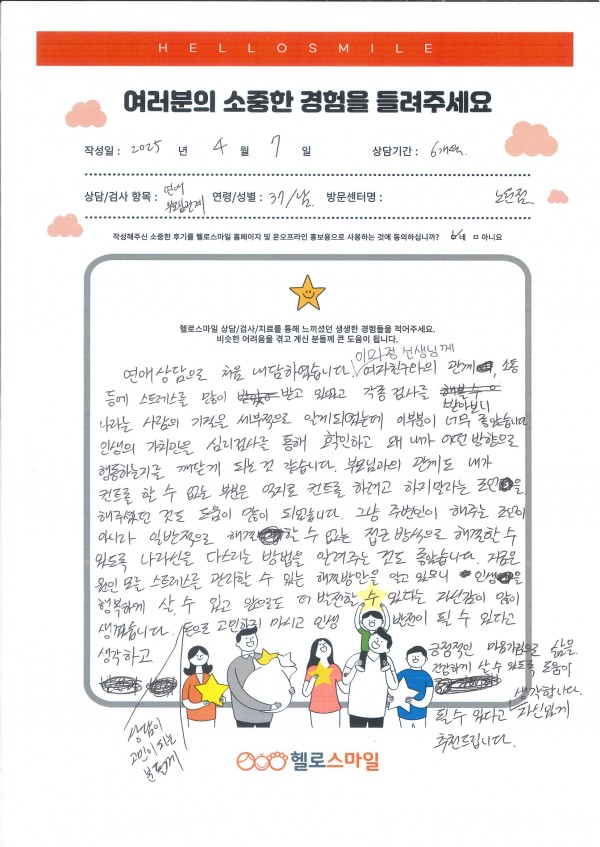 HELLOSMILE
여러분의 소중한 경험을 들려주세요
작성일 : 2025 년 4 월 7 일 상담기간 : 6개월.
상담/검사 항목 : 연애 부모님관계 연령/성별 : 37/남. 방문센터명 : 노원점.
작성해주신 소중한 후기를 헬로스마일 홈페이지 및 온오프라인 홍보용으로 사용하는 것에 동의하십니까? 네 아니요
헬로스마일 상담/검사/치료를 통해 느끼셨던 생생한 경험들을 적어주세요.
비슷한 어려움을 겪고 계신 분들께 큰 도움이 됩니다.
선생님께
연애 상담으로 처음 내담하였습니다. 여자친구와의 관계, 소통
등에 스트레스를 많이 받고 있었고 각종 검사를 받아보니
나라는 사람의 기질을 세부적으로 알게되었는데 이부분이 너무 좋았습니다
인생의 가치관을 심리검사를 통해 확인하고 왜 내가 어떤 방향으로
행동하는지를 깨닫게 되는것 같습니다. 부모님과의 관계도 내가
컨트롤 할 수 없는 부분은 억지로 컨트롤 하려고 하지말라는 조언을
해주셨던 것도 도움이 많이 되었습니다. 그냥 주변인이 해주는 조언이
아니라 일반적으로 해결할 수 없는 접근 방식으로 해결할 수
있도록 나자신을 다스리는 방법을 알려주는 것도 좋았습니다. 지금은
원인 모를 스트레스를 관리할 수 있는 해결방안을 알고 있으니 인생을
행복하게 살 수 있고 앞으로도 더 발전할 수 있다는 자신감이 많이
생겼습니다. 돈으로 고민하지 마시고 인생 발전이 될 수 있다고
생각하고 긍정적인 마음가짐으로 삶을
건강하게 살 수 있도록 도움이
생각합니다.
될 수 있다고 자신있게
추천드립니다.
상담이
고민이 되는
분들께
헬로스마일